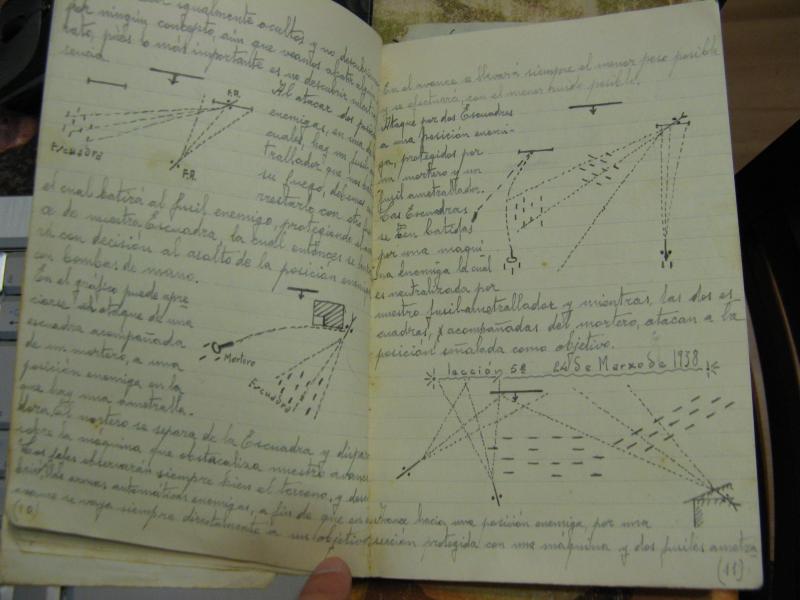 igualmente ocultos y no descubrirse
por ningún concepto, aún que veamos abatir algún
pues lo más importante es no descubrir nuestra
sencia.
Al atacar dos
enemigas, en una de
cuales, hay un fusil
trallador que nos bate
su fuego, debemos
rrestarlo con otro
F.R.
F.R.
Escuadra
el cual batirá al fusil enemigo, protegiendo el
ce de nuestra Escuadra, la cual entonces se
rá con decisión al asalto de la posición enemiga
con bombas de mano.
En el gráfico puede apre
ciarse el ataque de una
escuadra acompañada
de un mortero, a una
posición enemiga en la
que hay una ametralla-
dora. El mortero se separa de la Escuadra y dispara
Mortero
Escuadra
sobre la máquina que obstaculiza nuestro avance
Los jefes observarán siempre bien el terreno, y
las armas automáticas enemigas, a fin de que en su
avance se vaya siempre directamente a un objetivo.
(10)
En el avance se llevará siempre el menor peso posible
y se efectuará, con el menor ruido posible.
Ataque por dos Escuadras
a una posición enemi-
ga, protegidos por
un mortero y un
fusil ametrallador.
Las Escuadras
se ven batidas
por una maqui
na enemiga la cual
es neutralizada por
nuestro fusil-ametrallador y mientras, las dos es
cuadras, acompañadas del mortero, atacan a la
posición señalada como objetivo.
Lección 5ª 24 de Marzo de 1938
Avance hacia una posición enemiga, por una
sección protegida con una máquina y dos fusiles ametra
(11)